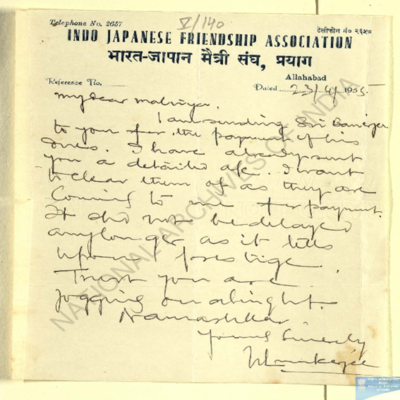 Telephone No. 2657
V/140
टेलीफोन नं० २६५७
INDO JAPANESE FRIENDSHIP ASSOCIATION
भारत-जापान मैत्री संघ, प्रयाग
Allahabad
Reference No.
Dated 23/4/ 1955.
My dear Malviya.
I am sending Sri
to you for the payment of his
dues. I have already sent
you a detailed a/c. I want
to clear them off as they are
coming to me for payment.
It should not be delayed
any longer as it tells
upon prestige.
Trust you are
jogging on alright.
Namashkar
Yours Sincerely
NATIONAL ARCHIVES OF INDIA